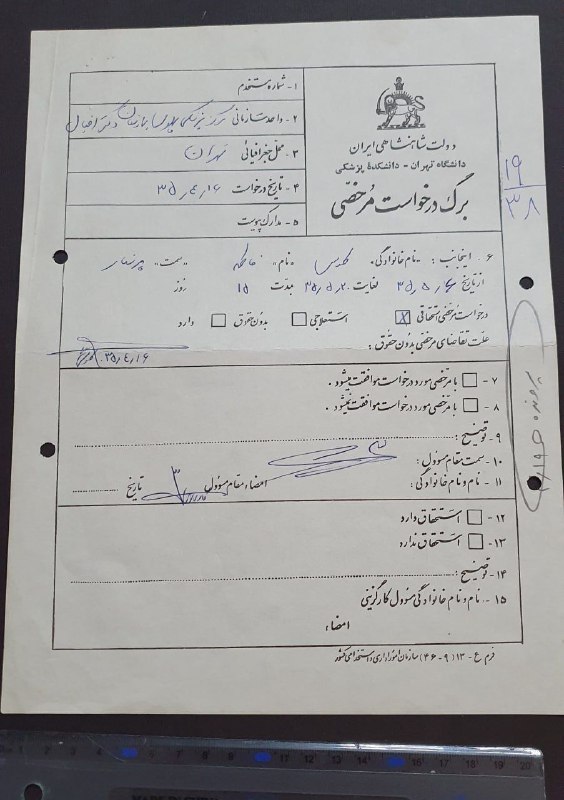 دولت شاهنشاهی ایران
دانشگاه تهران - دانشکدهٔ پزشکی
برگ درخواست مرخصی
۱ - شماره مستخدم
۲ - واحد سازمانی مرکز پزشکی بیمارستان دکتر اقبال
۳ - محل جغرافیائی تهران
۴ - تاریخ درخواست ۳۵,۴,۱۶
۵ - مدارک پیوست
۱۹
۳۸
۶ - اینجانب : «نام خانوادگی» «نام» فاطمه «سمت»
از تاریخ ۳۵,۵,۶ لغایت ۳۵,۵,۲۰ بمدت ۱۵ روز
درخواست مرخصی استحقاقی x استعلاجی بدون حقوق دارد
علت تقاضای مرخصی بدون حقوق :
۳۵,۴,۱۶
پرونده
۷ - با مرخصی مورد درخواست موافقت میشود .
۸ - با مرخصی مورد درخواست موافقت نمیشود .
۹ - توضیح :
۱۰ - سمت مقام مسؤول :
۱۱ - نام و نام خانوادگی : امضاء مقام مسؤول تاریخ
۱۲ - استحقاق دارد
۱۳ - استحقاق ندارد
۱۴ - توضیح :
۱۵ - نام و نام خانوادگی مسؤول کارگزینی
امضاء
فرم ع - ۱۳ (۹ - ۴۶) سازمان امور اداری و استخدامی کشور
1 2 3 4 5 6 7 8 9 10 11 12 13 14 15 16 17 18 19 20